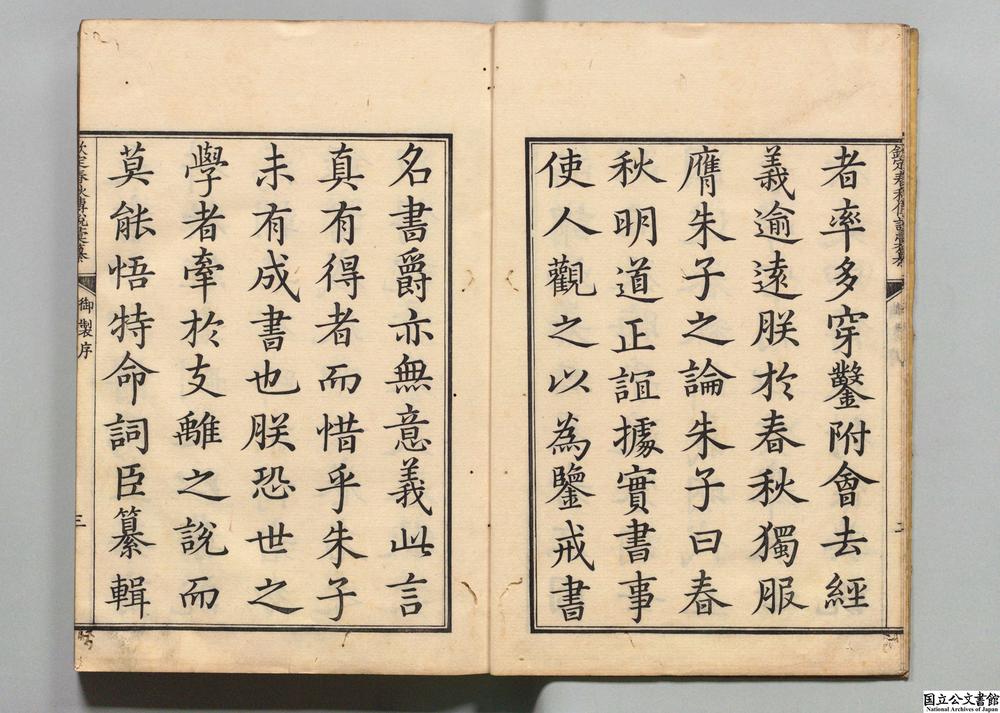 欽定春秋傳說彙纂
者率多穿鑿附會去經
義逾遠朕於春秋獨服
膺朱子之論朱子曰春
秋明道正誼據實書事
使人觀之以為鑒戒書
名書爵亦無意義此言
真有得者而惜乎朱子
未有成書也朕恐世之
學者牽於支離之說而
莫能悟特命詞臣纂輯
欽定春秋傳說彙纂
御製序
三
国立公文書館
National Archives of Japan